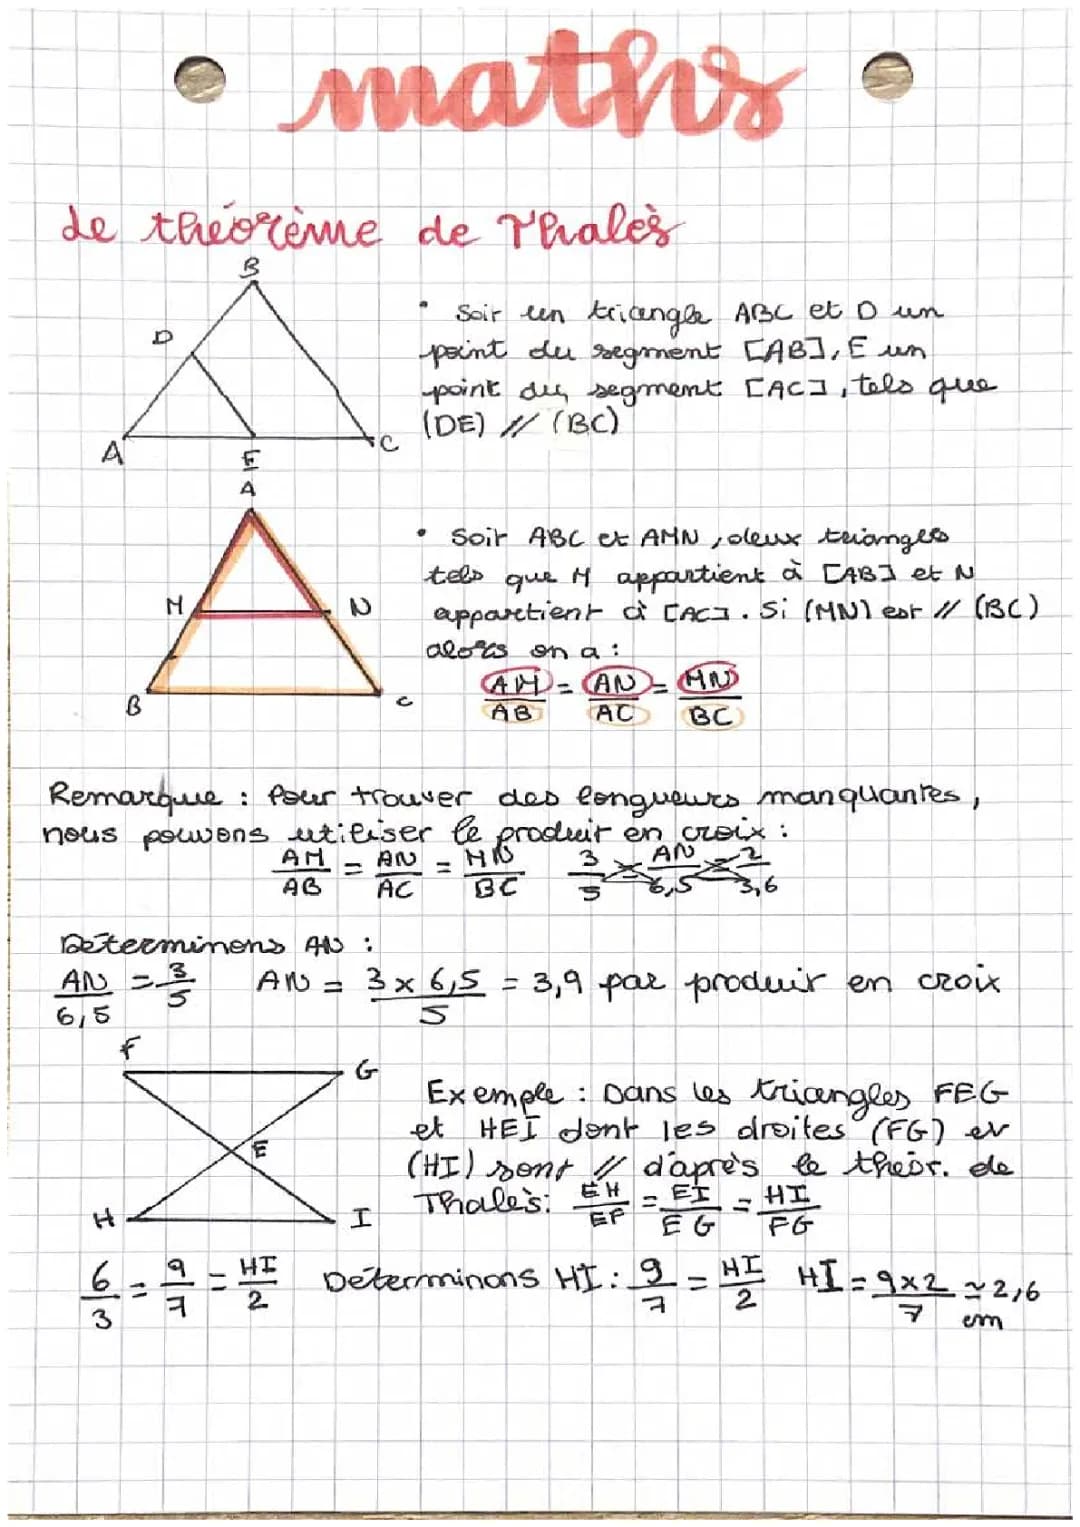 maths
Le théorème de Thalès
B
D
A
E
C
• Soit un triangle ABC et D un
point du segment [AB], E un
point du segment [AC], tels que
(DE) // (BC)
A
M
N
B
C
• Soit ABC et AMN, deux triangles
tels que M appartient à [AB] et N
appartient à [AC]. Si (MN) est // (BC)
alors on a :
AM/AB = AN/AC = MN/BC
Remarque : Pour trouver des longueurs manquantes,
nous pouvons utiliser le produit en croix :
AM/AB = AN/AC = MN/BC 3/5 = AN/6,5 = 2/3,6
Déterminons AN :
AN/6,5 = 3/5 AN = 3 x 6,5/5 = 3,9 par produit en croix
F
G
E
H
I
Exemple : Dans les triangles FEG
et HEI dont les droites (FG) et
(HI) sont // d'après le théor. de
Thalès: EH/EF = EI/EG = HI/FG
6/3 = 9/7 = HI/2 Déterminons HI : 9/7 = HI/2 HI = 9x2/7 ≃ 2,6
cm